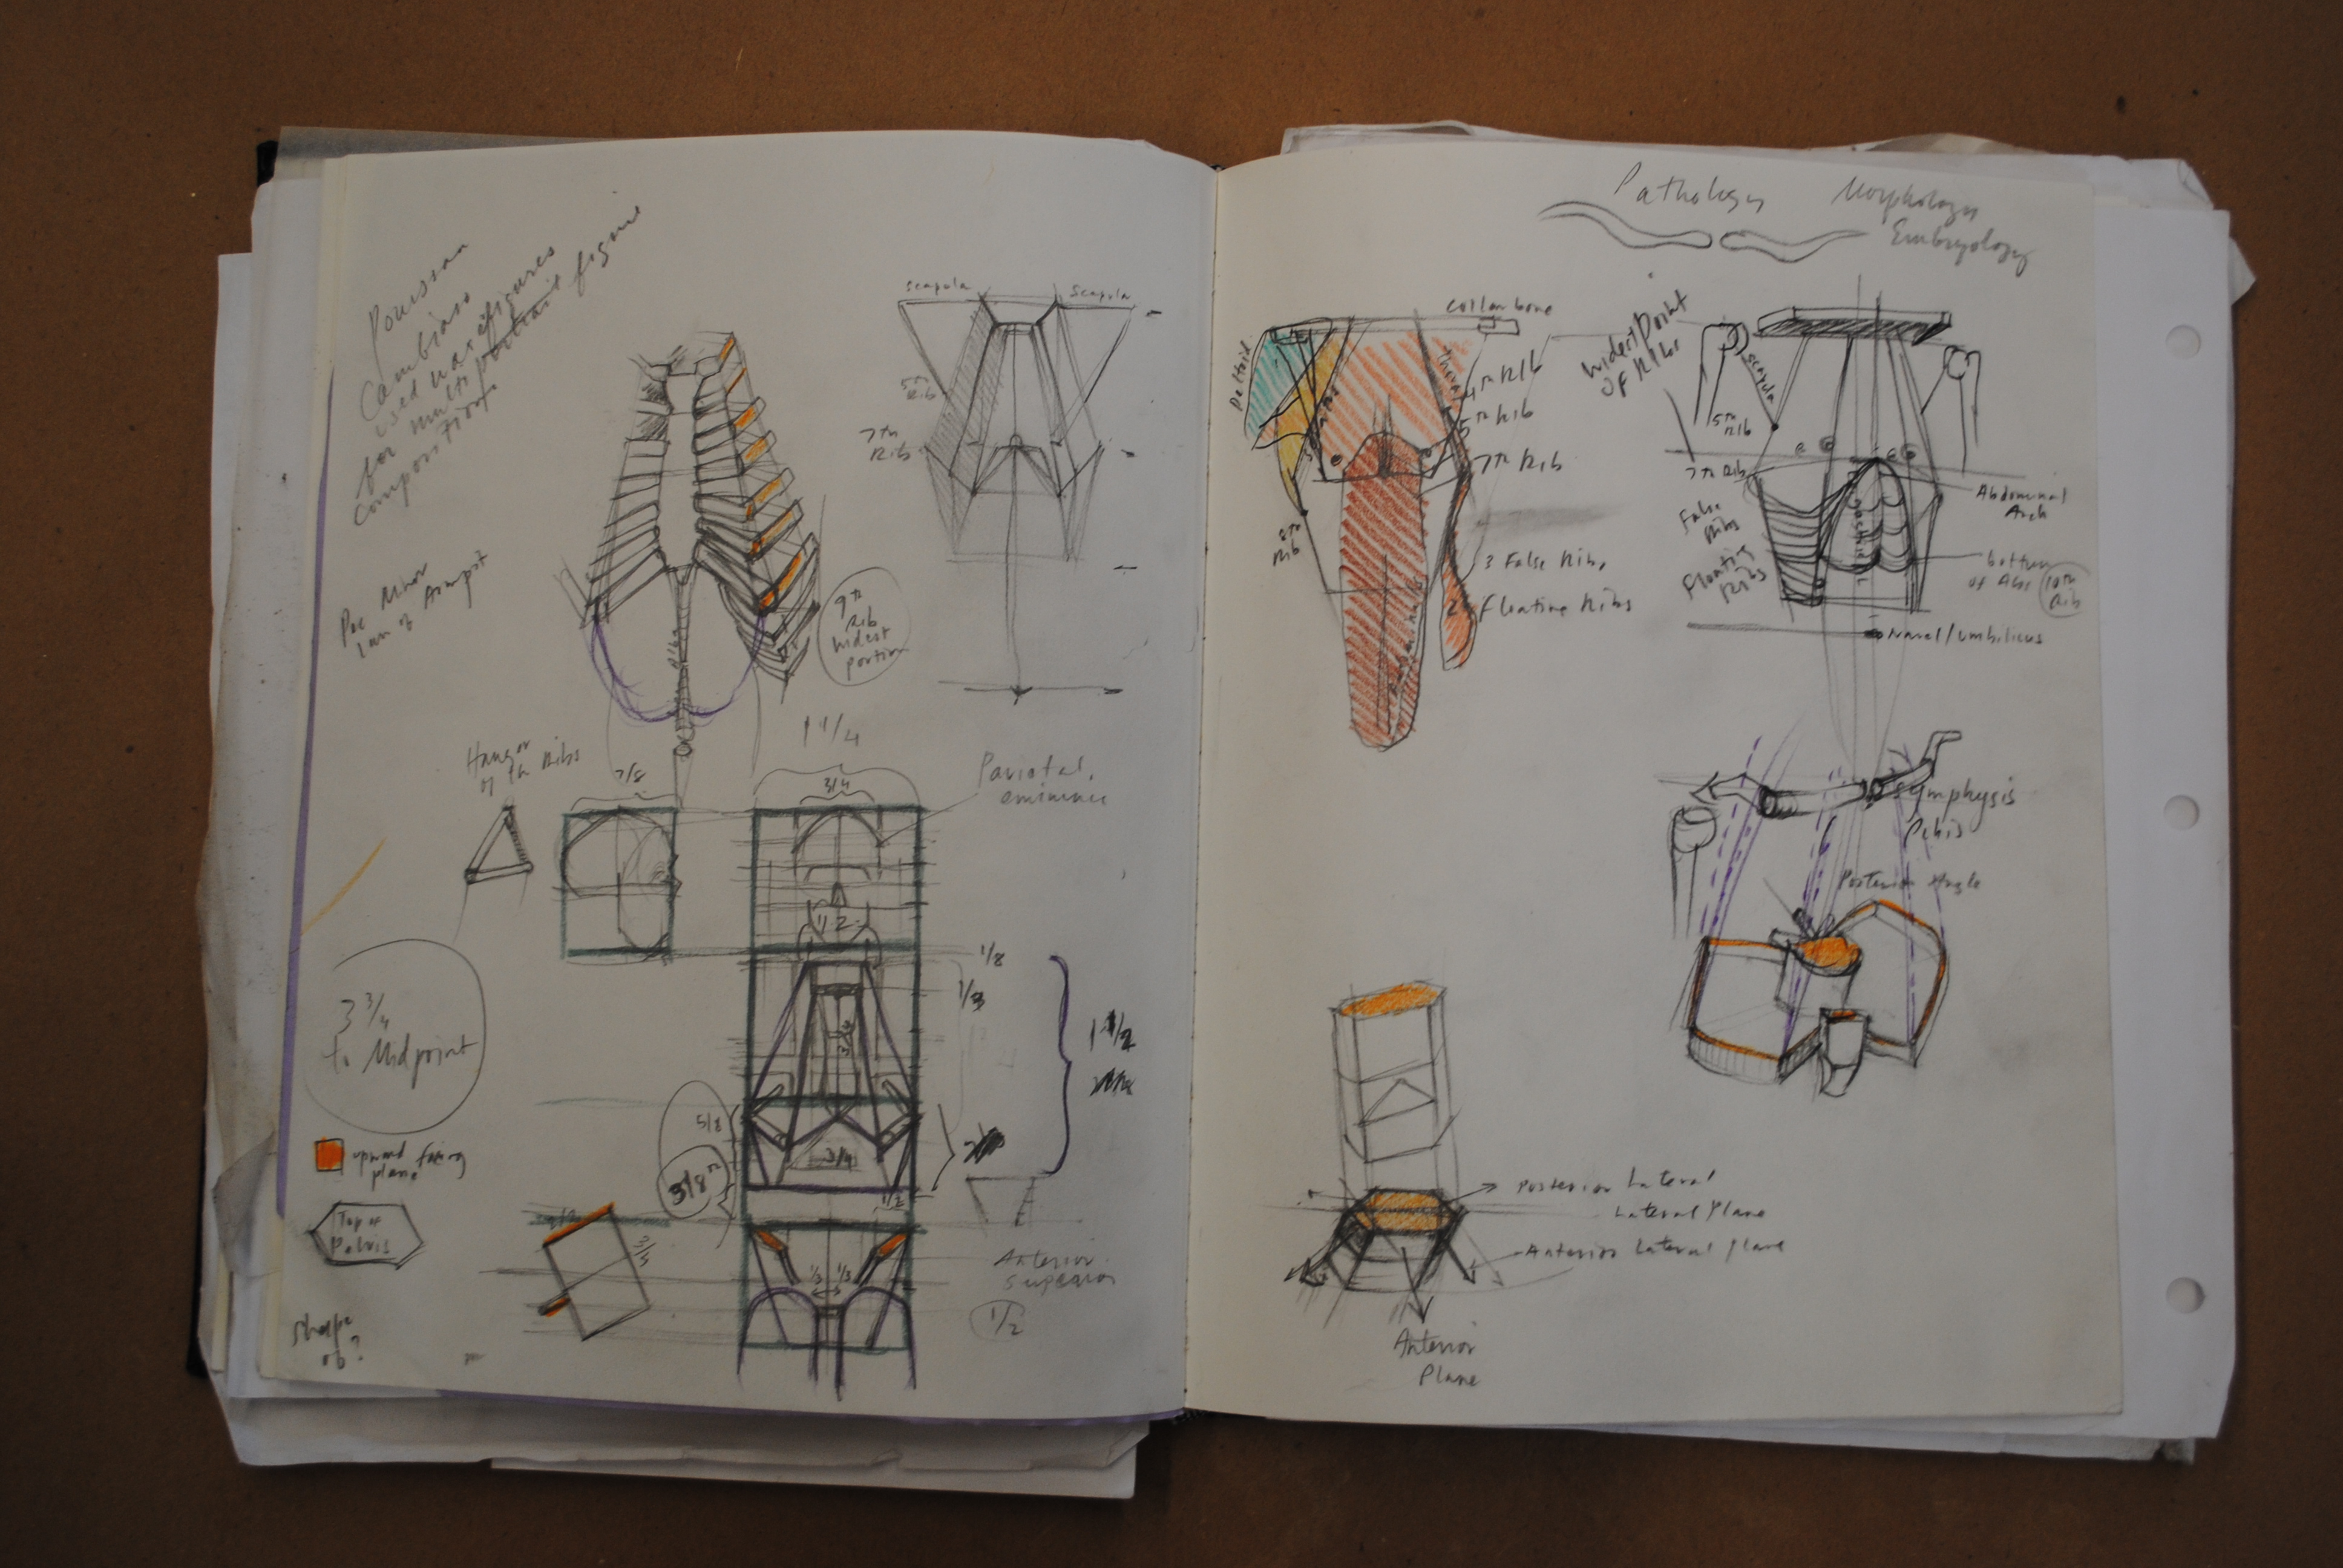 Poussan
Cambiaso
used wax figures
for multi portrait figure
composition
Pec Minor
scapula
scapula
5th
Rib
7th
Rib
9th
Rib
widest
portion
of 7th Ribs
7/8
1 1/4
3/4
Parietal
eminence
1/2
1/8
1/3
3/4
1 1/2
5/8
3/8"
3/4
1/2
3 3/4
to Midpoint
upward facing
plane
Top of
Pelvis
1/3
1/3
Anterior
Superior
1/2
Shape
of?
Pathology
Morphology
Embryology
collar bone
Deltoid
Thorax
4th Rib
5th Rib
7th Rib
8th
Rib
3 False Ribs
2
Floating Ribs
Widest Point
of Ribs
scapula
5th
Rib
7th Rib
False
Ribs
Floating
Ribs
Abdominal
Arch
bottom
of Abs
10th
Rib
Navel/umbilicus
Symphysis
Pubis
Posterior Angle
Posterior Lateral
Lateral Plane
Anterior Lateral Plane
Anterior
Plane